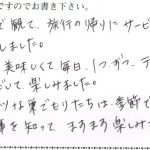 ですのでお書き下さい。
で観て、旅行の帰りにサービ
しました。
美味しくて毎日、1つ、が、テ
として、楽しみました。
ツな巣ごもりたちは、季節で
事を知って ますます楽しみ